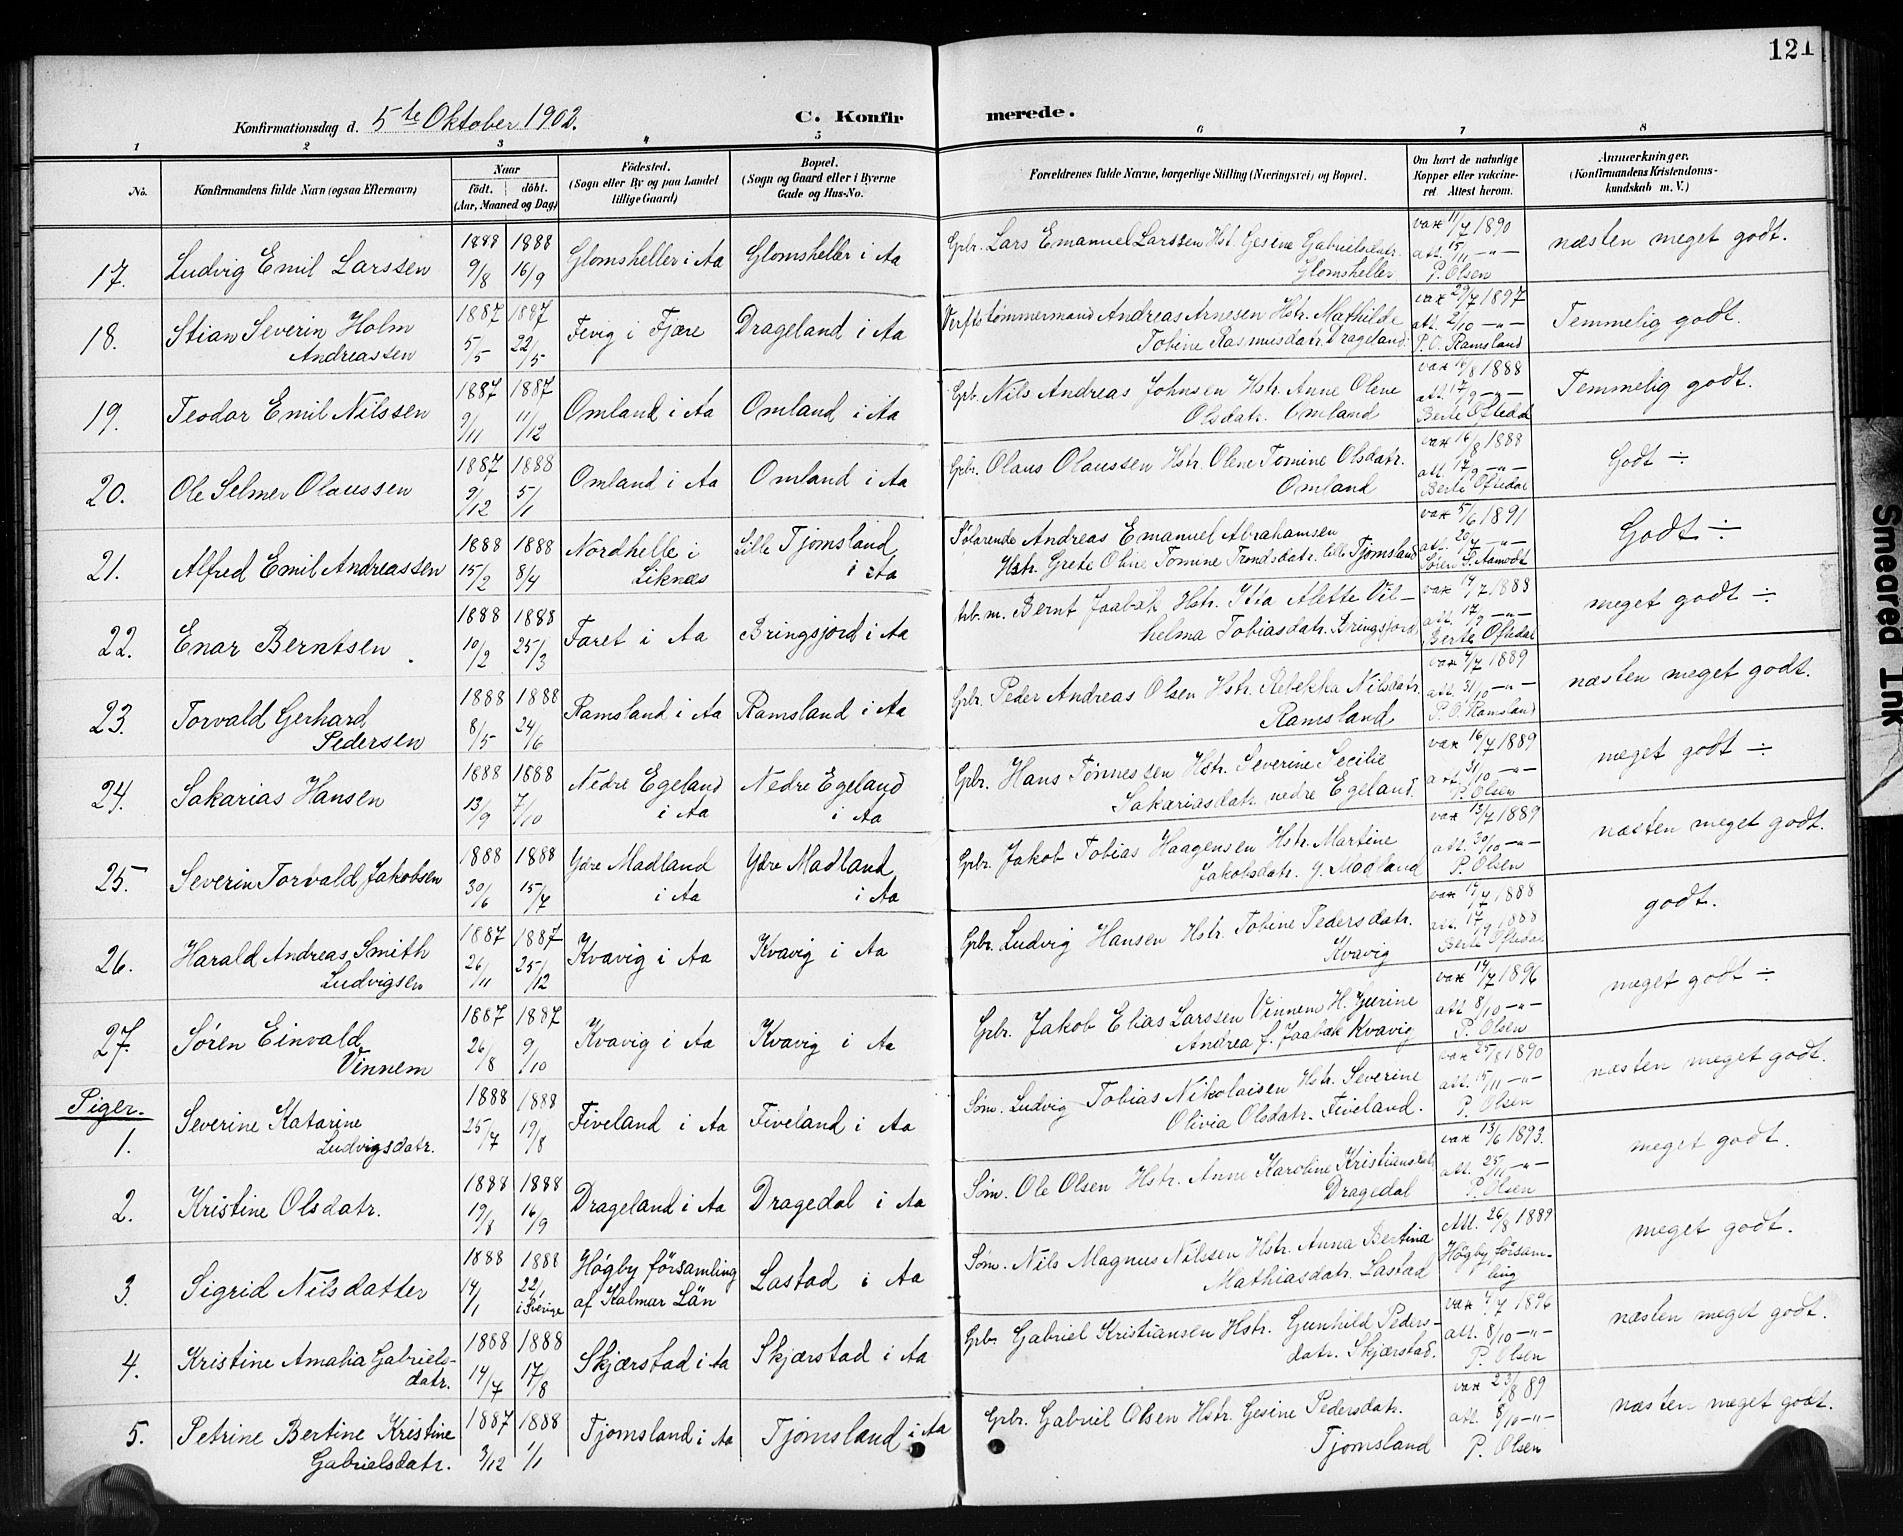 121
Konfirmationsdag d. 5te Oktober 1902.
C. Konfirmerede.
1 2 3 4 5 6 7 8
No.
Konfirmandens fulde Navn (ogsaa Efternavn)
Naar
födt. döbt.
(Aar, Maaned og Dag)
Födested.
(Sogn eller By og paa Landet
tillige Gaard)
Bopæl.
(Sogn og Gaard eller i Byerne
Gade og Hus-No.
Forældrenes fulde Navne, borgerlige Stilling (Næringsvei) og Bopæl.
Om havt de naturlige
Kopper eller vakcine-
ret Attest herom.
Anmærkninger.
(Konfirmandens Kristendoms-
kundskab m. V.)
17. Ludvig Emil Larssen 1888 9/8 1888 16/9 Glomsheller i Aa Glomsheller i Aa
Gbr. Lars Emanuel Larssen Hst. Gesene Gabrielsdatr.
Glomsheller
vax 11/7 1890
att. 15/11 -"-
P. Olsen
næsten meget godt.
18. Stian Severin Holm
Andreassen
1887 5/5 1887 22/5 Fevig i Fjære Drageland i Aa
Verftstømmermand Andreas Arnesen Hstr. Mathilde
Tobine Rasmusdatr. Drageland.
vax 29/7 1897
att. 2/10 -"-
P. O. Ramsland
Temmelig godt.
19. Teodor Emil Nilssen 1887 9/11 1887 11/12 Omland i Aa Omland i Aa
Gbr. Nils Andreas Johnsen Hstr. Anne Olene
Olsdatr. Omland
vax 16/8 1888
att. 17/9 -"-
Berte Oftedal
Temmelig godt.
20. Ole Selmer Olaussen 1887 9/12 1888 5/1 Omland i Aa Omland i Aa
Gbr. Olaus Olaussen Hstr. Olene Tomine Olsdatr.
Omland
vax 16/8 1888
att. 17/9 -"-
Berte Oftedal
Godt ÷
21. Alfred Emil Andreassen 1888 15/2 1888 8/4 Nordhelle i
Liknes
Lille Tjomsland
i Aa
Sølarende Andreas Emanuel Abrahamsen
Hstr. Grete Oline Tomine Trondsdatr. lille Tjomsland
vax 5/6 1891
att. 20/7 -"-
Søren T. Aamodt
Godt ÷
22. Enar Berntsen 1888 10/2 1888 25/3 Faret i Aa Bringsjord i Aa
Arb. m. Bernt Jaabæk Hstr. Itta Alette Vil-
helma Tobiasdatr. Bringsjord
vax 14/7 1888
att. 17/9 -"-
Berte Oftedal
meget godt ÷
23. Torvald Gerhard
Pedersen
1888 8/5 1888 24/6 Ramsland i Aa Ramsland i Aa
Gbr. Peder Andreas Olsen Hstr. Rebekka Nilsdatr.
Ramsland
vax 4/7 1889
att. 31/10 -"-
P. O. Ramsland
næsten meget godt.
24. Sakarias Hansen 1888 13/9 1888 7/10 Nedre Egeland
i Aa
Nedre Egeland
i Aa
Gbr. Hans Tønnessen Hstr. Severine Secilie
Sakariasdatr. nedre Egeland.
vax 16/7 1889
att 31/10 -"-
P. Olsen
meget godt ÷
25. Severin Torvald Jakobsen 1888 30/6 1888 15/7 Ydre Madland
i Aa
Ydre Madland
i Aa
Gbr. Jakob Tobias Haagensen Hstr. Martine
Jakobsdatr. y. Madland
vax 13/7 1889
att. 30/10 -"-
P. Olsen
næsten meget godt.
26. Harald Andreas Smith
Ludvigsen
1887 26/11 1887 25/12 Kvavig i Aa Kvavig i Aa
Gbr. Ludvig Hansen Hstr. Tobine Pedersdatr.
Kvavig
vax 14/7 1888
att. 17/9 1888
Berte Oftedal
godt.
27. Søren Einvald
Vinnem
1887 26/8 1887 9/10 Kvavig i Aa Kvavig i Aa
Gbr. Jakob Elias Larssen Vinnem H. Jurine
Andrea f. Jaabæk Kvavig
vax 14/7 1896
att 8/10 -"-
P. Olsen
meget godt ÷
Piger.
1. Severine Katarine
Ludvigsdatr.
1888 25/7 1888 19/8 Fiveland i Aa Fiveland i Aa
Søm. Ludvig Tobias Nikolaisen Hstr. Severine
Olivia Olsdatr. Fiveland.
vax 25/8 1890
att. 15/11 -"-
P. Olsen
næsten meget godt.
2. Kristine Olsdatr. 1888 19/8 1888 16/9 Drageland i Aa Dragedal i Aa
Søm. Ole Olsen Hstr. Anne Karoline Kristiansdatr.
Dragedal
vax 13/6 1893.
att. 25/11 -"-
P. Olsen
meget godt.
3. Sigrid Nilsdatter 1888 14/1 1888 22/1 i Sverige Högby församling
af Kalmar Län
Lastad i Aa
Søm. Nils Magnus Nilssen Hstr. Anna Bertina
Mathiasdatr. Lastad
Att. 26/8 1889
Högby försam-
ling
meget godt.
4. Kristine Amalia Gabriels-
datr.
1888 14/7 1888 17/8 Skjærstad i Aa Skjærstad i Aa
Gbr. Gabriel Kristiansen Hstr. Gunhild Peders-
datr. Skjærstad.
vax 4/7 1896
att. 8/10 -"-
P. Olsen
næsten meget godt.
5. Petrine Bertine Kristine
Gabrielsdatr.
1887 3/12 1888 1/1 Tjomsland i Aa Tjomsland i Aa
Gbr. Gabriel Olsen Hstr. Gesine Pedersdatr.
Tjomsland
vax 23/8 89
att. 8/10 -"-
P. Olsen
næsten meget godt.
Smeared Ink